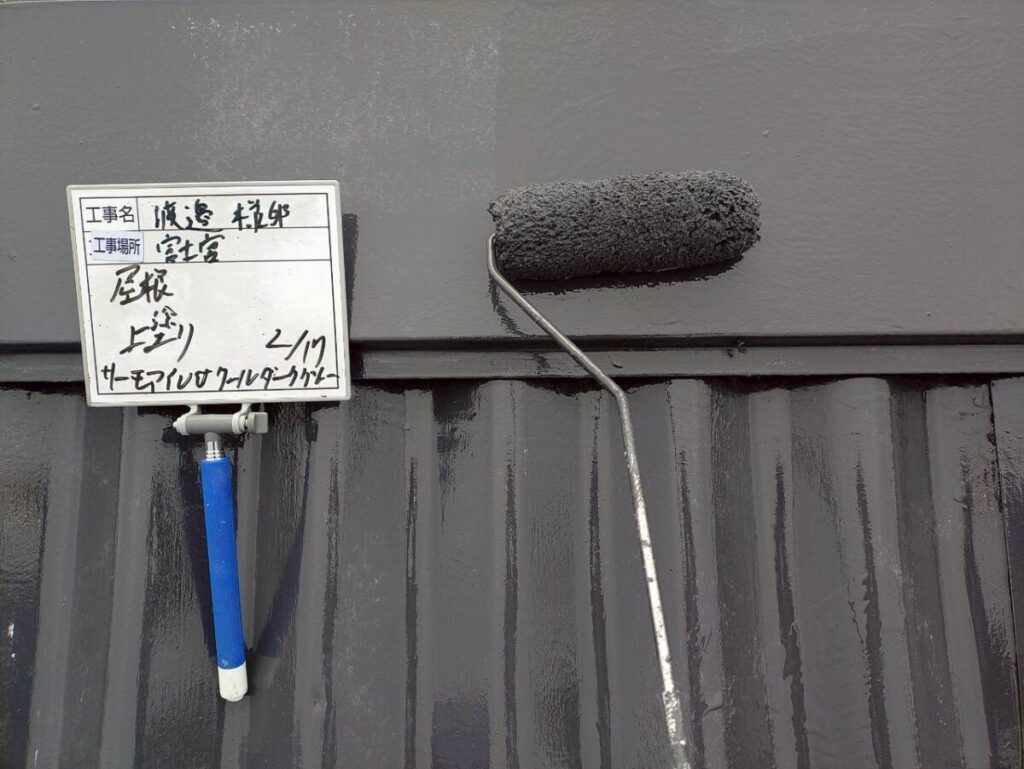 工事名 渡邉 様邸
工事場所 富士宮
屋根
上塗り 2/17
サーモアイSi クールダークグレー